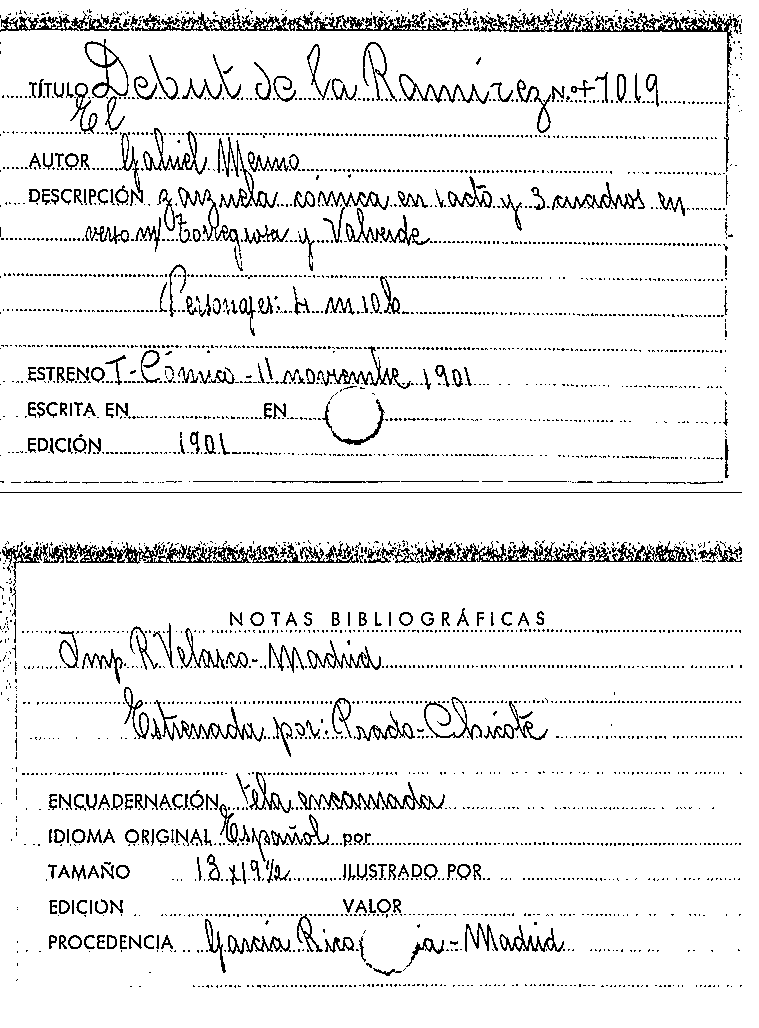 TÍTULO Debut de la Ramírez N.º 7019
El
AUTOR Gabriel Merino
DESCRIPCIÓN zarzuela cómica en 1 acto y 3 cuadros en
verso m/ Torregrosa y Valverde
Personajes: 4 m 10 h
ESTRENO T. Cómico - 11 noviembre 1901
ESCRITA EN EN
EDICIÓN 1901
NOTAS BIBLIOGRÁFICAS
Imp R Velasco - Madrid
Estrenada por: Prado-Chicote
ENCUADERNACIÓN tela encarnada
IDIOMA ORIGINAL Español por
TAMAÑO 13 x 19 1/2 ILUSTRADO POR
EDICION VALOR
PROCEDENCIA García Rico ia - Madrid